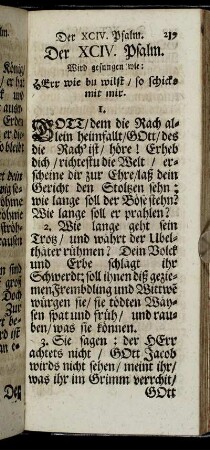 Der XCIV. Psalm. 219
Der XCIV. Psalm.
Wird gesungen wie:
HErr wie du wilst / so schicks
mit mir.
1.
GOTT / dem die Rach al-
lein heimfallt / GOtt / des
die Rach ist / höre ! Erheb
dich / richtest du die Welt / er-
scheine dir zur Ehre / laß dein
Gericht den Stoltzen sehn:
wie lange soll der Böse stehn?
Wie lange soll er prahlen?
2. Wie lange geht sein
Trotz / und währt der Übel-
thäter rühmen? Dein Volck
und Erbe schlagt ihr
Schwerdt; soll ihnen diß gezie-
men? Frembdling und Wittwe
würgen sie / sie tödten Way-
sen spat und früh / und rau-
ben / was sie können.
3. Sie sagen: der HErr
achtets nicht / GOtt Jacob
wirds nicht sehen / meint ihr /
was ihr im Grimm verrcht /
GOtt